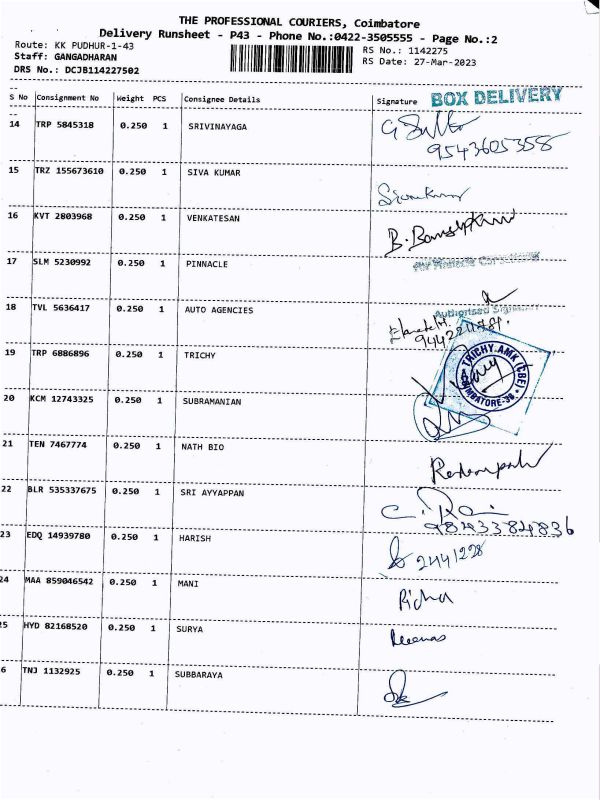 THE PROFESSIONAL COURIERS, Coimbatore
Delivery Runsheet - P43 - Phone No.:0422-3505555 - Page No.:2
Route: KK PUDHUR-1-43
RS No.: 1142275
Staff: GANGADHARAN
RS Date: 27-Mar-2023
DRS No.: DCJB114227502
S No Consignment No Weight PCS Consignee Details Signature BOX DELIVERY
14 TRP 5845318 0.250 1 SRIVINAYAGA
9543605358
15 TRZ 155673610 0.250 1 SIVA KUMAR
Sivakumar
16 KVT 2803968 0.250 1 VENKATESAN
17 SLM 5230992 0.250 1 PINNACLE
18 TVL 5636417 0.250 1 AUTO AGENCIES
Authorised
19 TRP 6886896 0.250 1 TRICHY
TRICHY.AMK (CBE).
COIMBATORE-38
20 KCM 12743325 0.250 1 SUBRAMANIAN
21 TEN 7467774 0.250 1 NATH BIO
22 BLR 535337675 0.250 1 SRI AYYAPPAN
23 EDQ 14939780 0.250 1 HARISH
2441228
24 MAA 859046542 0.250 1 MANI
25 HYD 82168520 0.250 1 SURYA
6 TNJ 1132925 0.250 1 SUBBARAYA